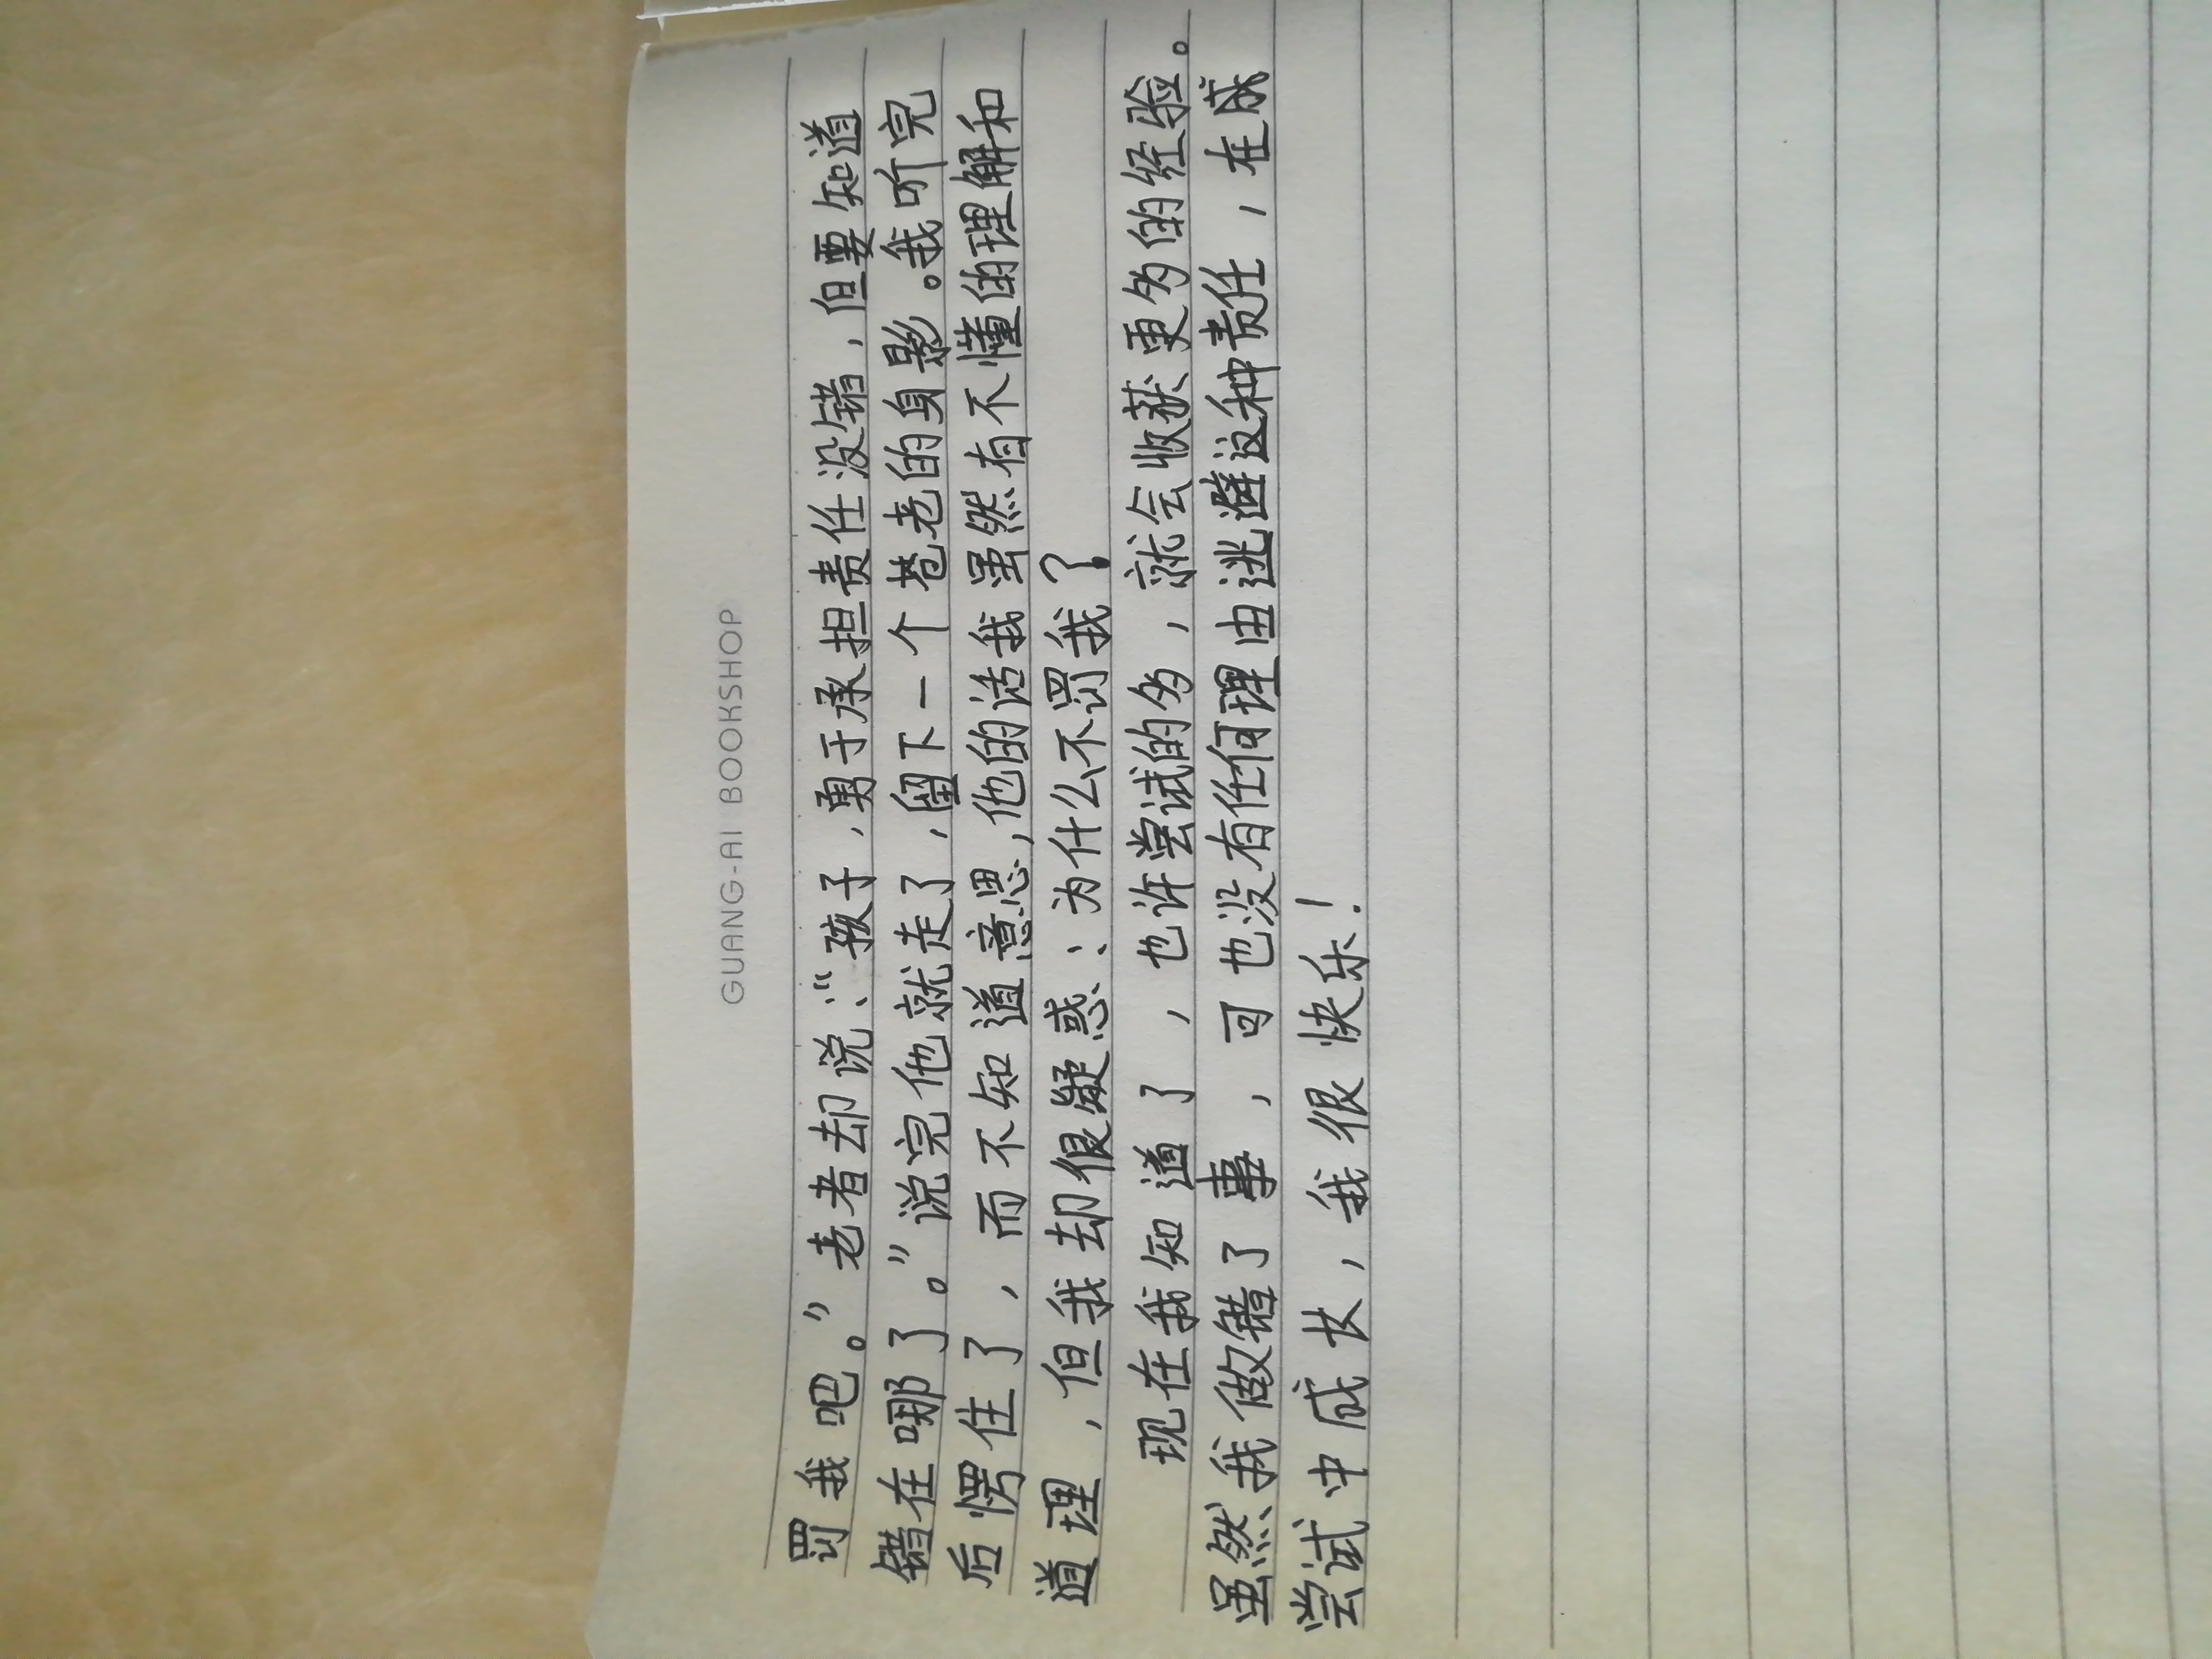 GUANG-AI BOOKSHOP
罚我吧。”老者却说:“孩子,勇于承担责任没错,但要知道
错在哪了。”说完他就走了,留下一个苍老的身影。我听完
后愣住了,而不知道意思,他的话我虽然有不懂的理解和
道理,但我却很疑惑:为什么不罚我?
现在我知道了,也许尝试的多,就会收获更多的经验。
虽然我做错了事,可也没有任何理由逃避这种责任,在成
尝试中成长,我很快乐!